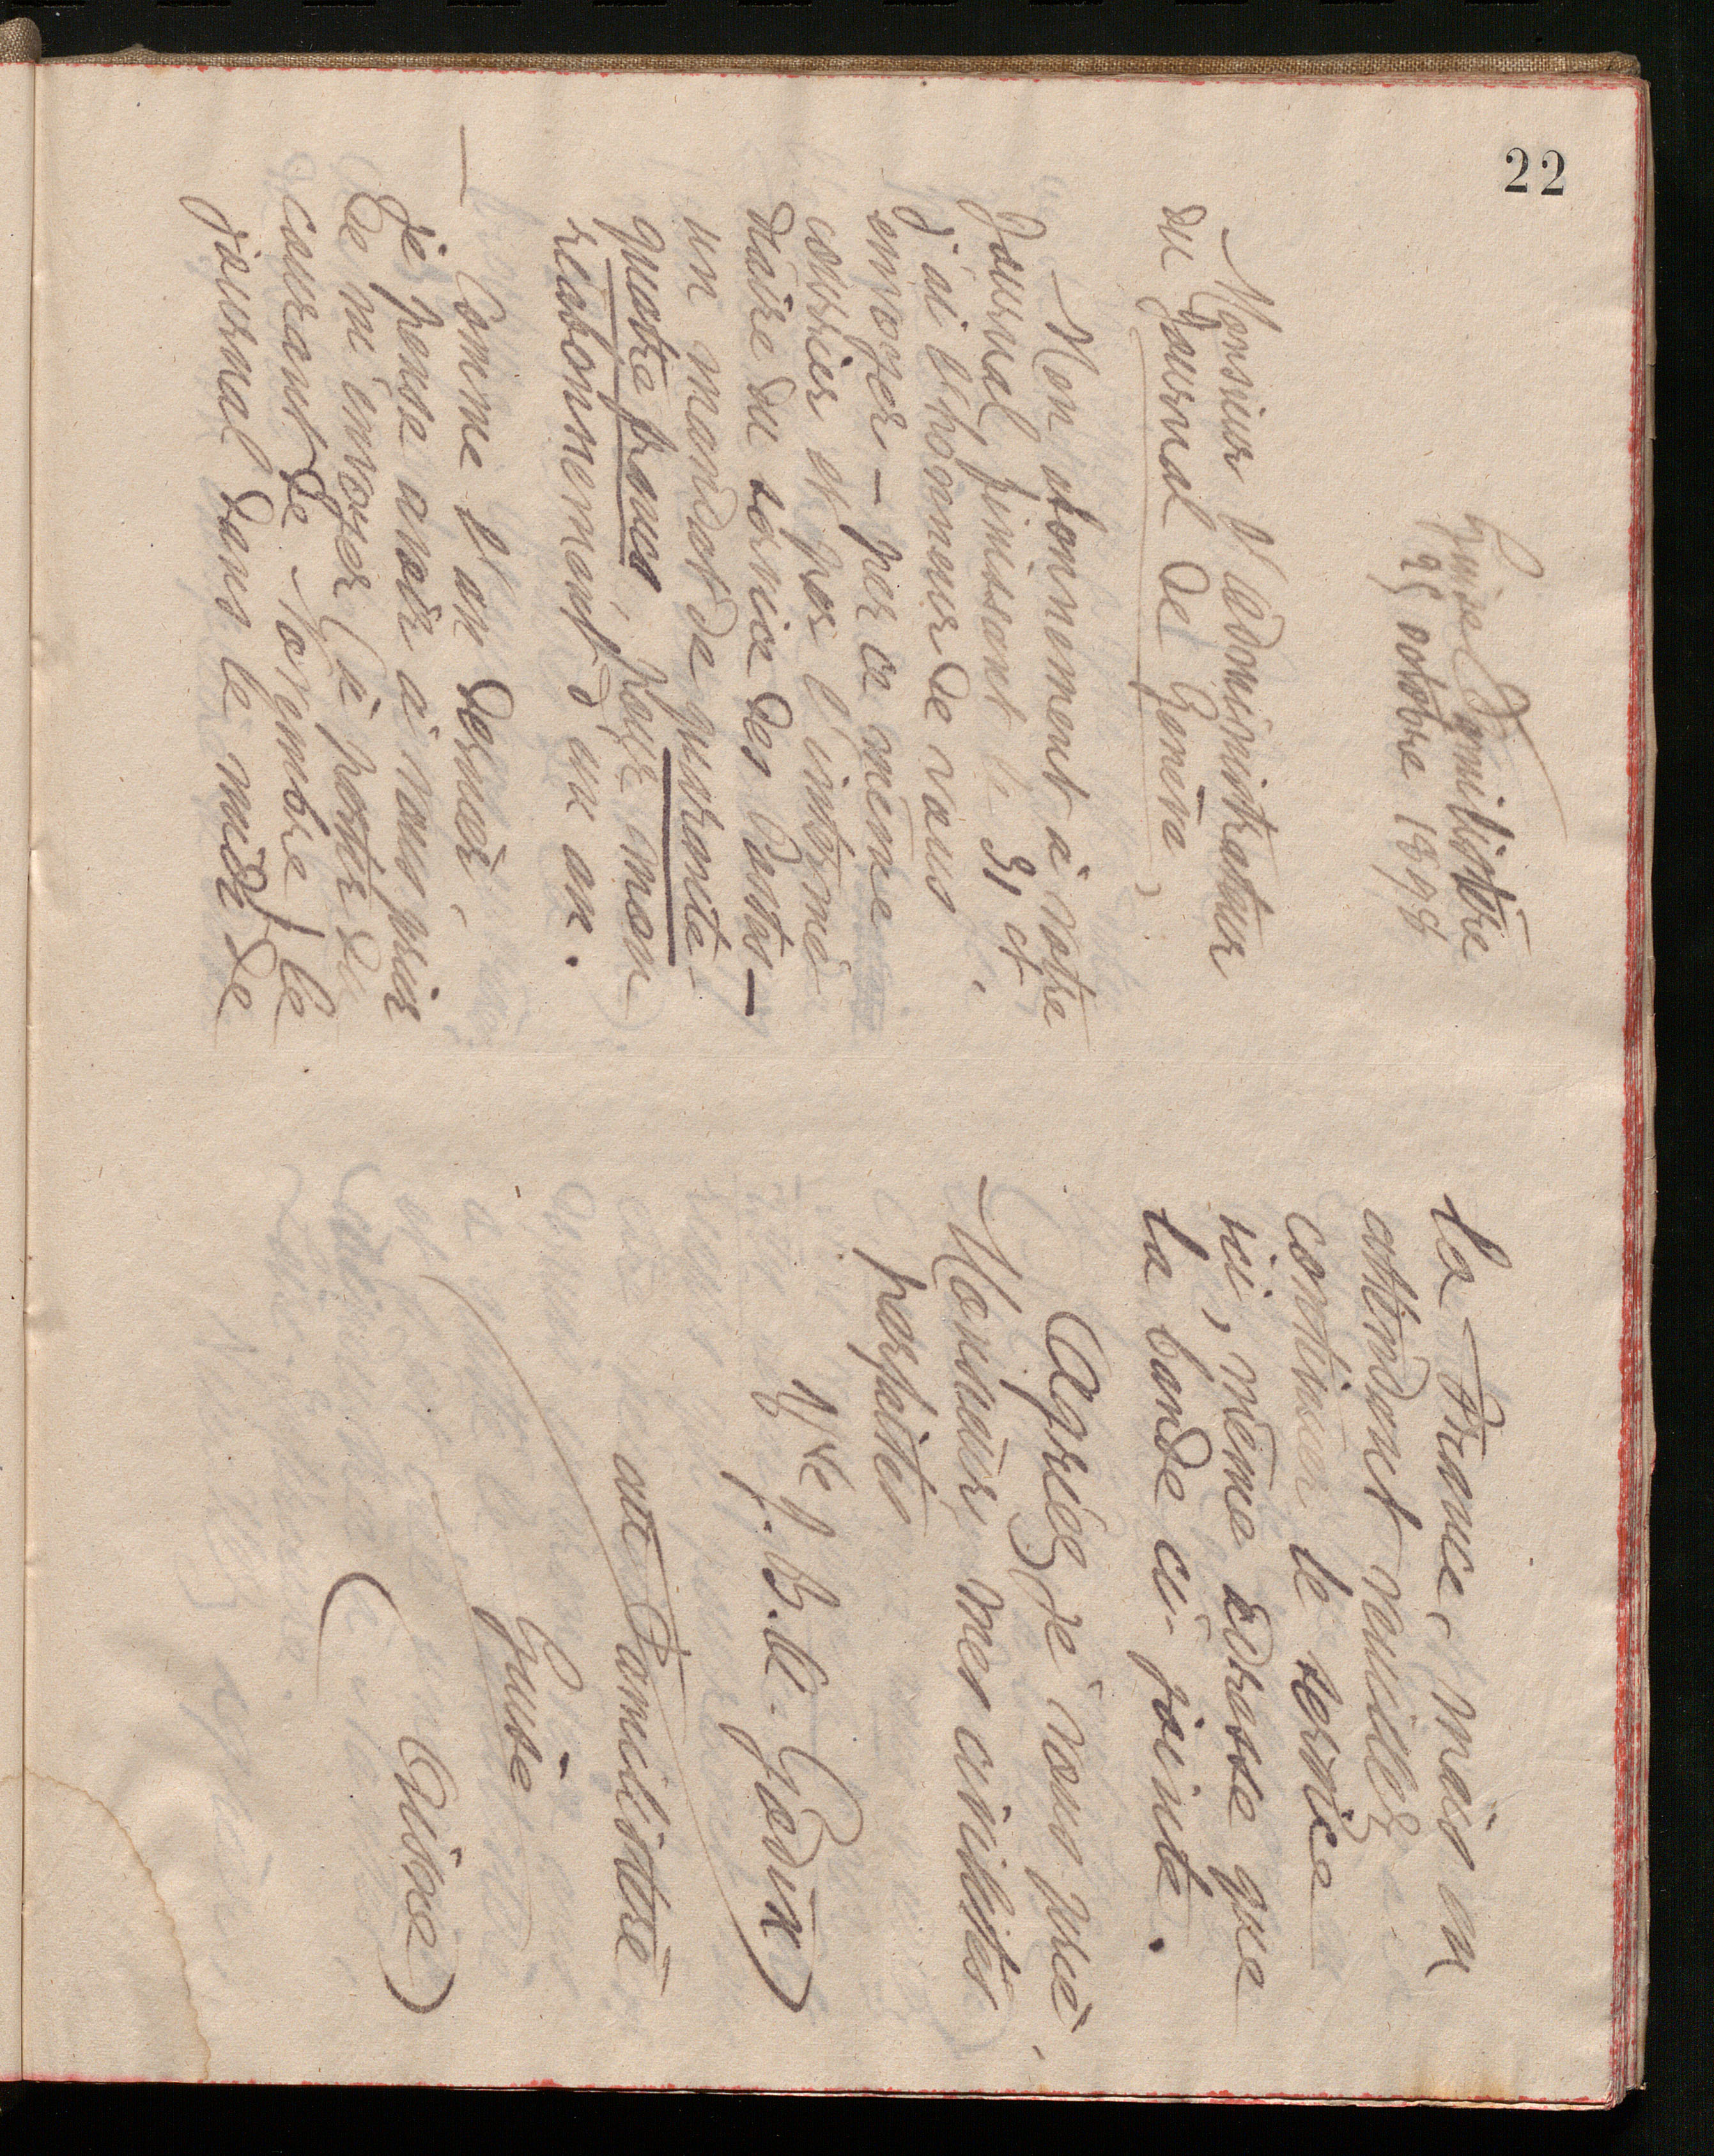 22
Guise Familistère
25 octobre 1898
Monsieur l'administrateur
du Journal de Genève,
Mon abonnement à votre
Journal finissant le 31 ct
j'ai l'honneur de vous
envoyer – par ce même
courrier et par l'intermé-
diaire du service des Postes –
un mandat de quarante-
quatre francs, pour mon
réabonnement d'un an.
Comme l'an dernier,
je pense avoir à vous prier
de m'envoyer (à partir du
courant de Novembre) le
journal dans le midi de
la France, mais en
attendant veuillez
continuer le service
ici, même adresse que
la bande ci-jointe.
Agréez je vous prie,
Monsieur, mes civilités
parfaites
Vve J. B. A. Godin
au Familistère
Guise
(Aisne)